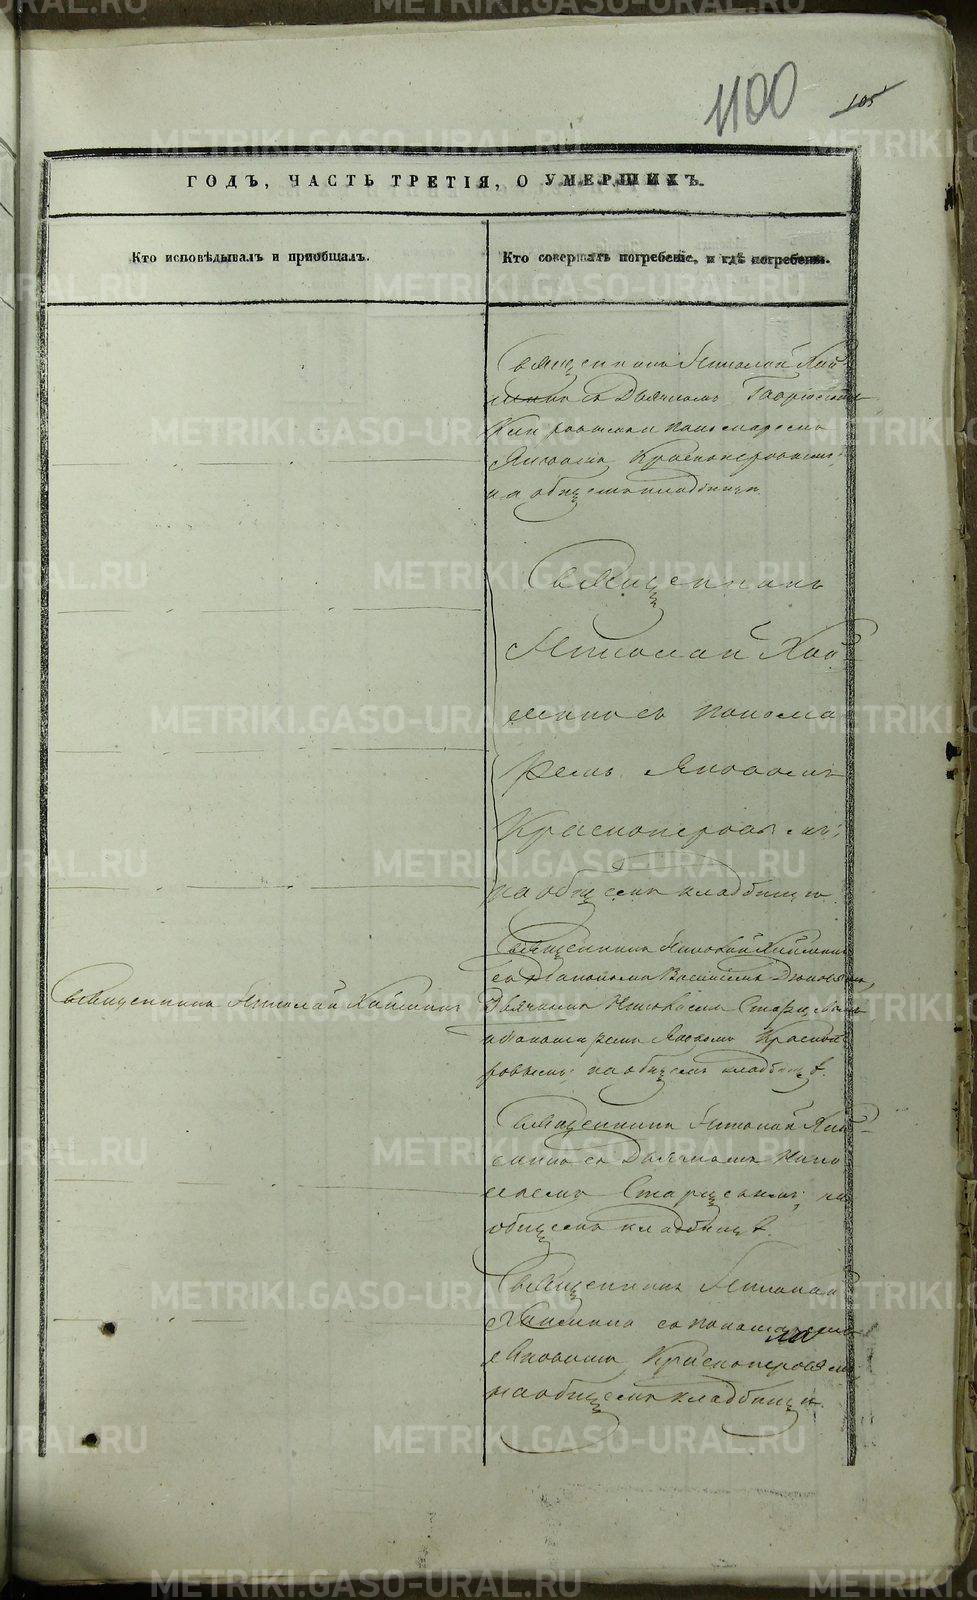 1100
105
ГОДЪ, ЧАСТЬ ТРЕТІЯ, О УМЕРШИХЪ.
Кто исповѣдывалъ и пріобщалъ.
Кто совершалъ погребеніе, и гдѣ погребены.
Священникъ Николай
съ Дьячкомъ
пономаремъ
Яковомъ Красноперовымъ
на общемъ кладбищѣ
Священникъ
Николай Хай
минъ съ понома
ремъ Яковомъ
Красноперовымъ;
на общемъ кладбищѣ.
Священникъ Николай Хайминъ
съ Василіемъ
Священникъ Николай Хайминъ
Дьячкомъ Старцевымъ
и Пономаремъ Яковомъ Краснопе
ровымъ; на общемъ кладбищѣ.
Священникъ Николай Хай
минъ съ Дьячкомъ
Старцевымъ; на
общемъ кладбищѣ.
Священникъ Николай
Хайминъ съ пономаремъ
Яковомъ Красноперовымъ
на общемъ кладбищѣ.
METRIKI.GASO-URAL.RU